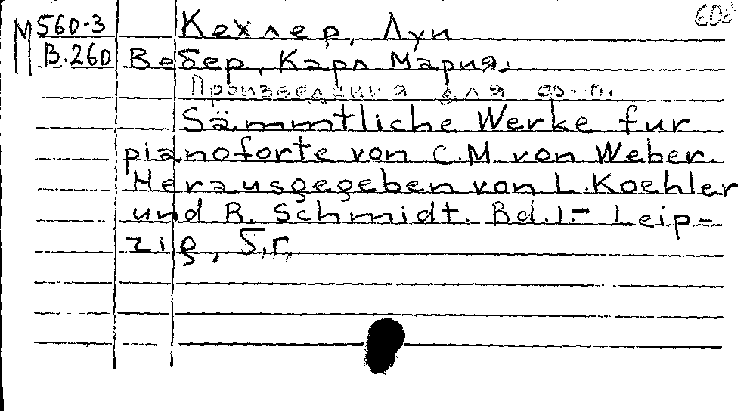 М 560-3 Кехлер, Луи
В.260 Вебер, Карл Мария.
Произведения для ф.-п.
Sämmtliche Werke fur
pianoforte von C.M. von Weber.
Herausgegeben von L. Koehler
und R. Schmidt. Bd.1- Leip-
zig, Б.г.